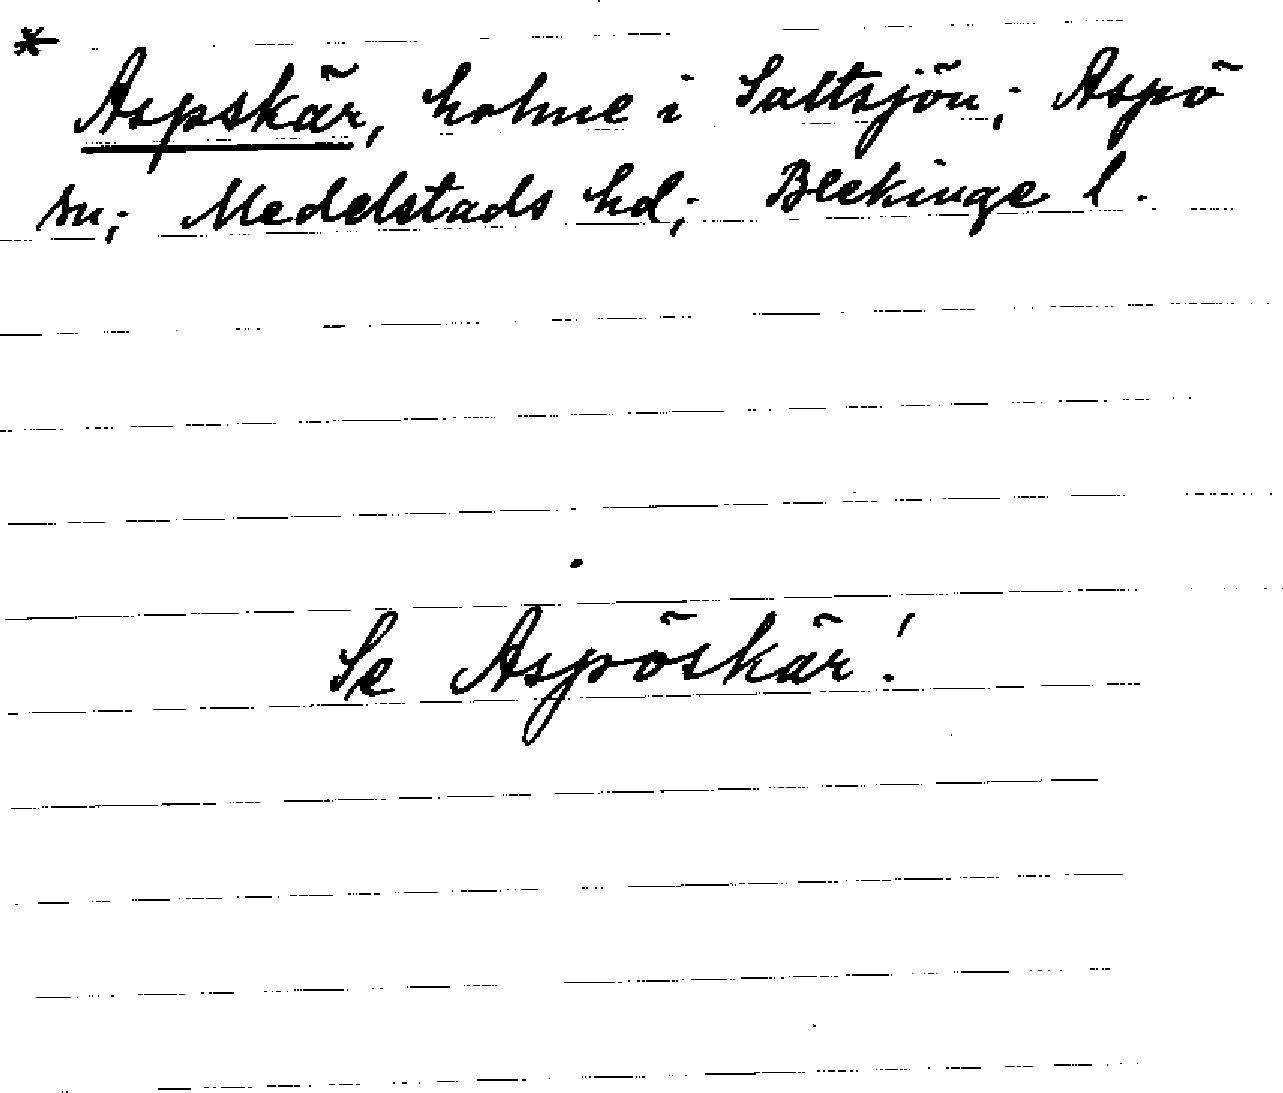 * Aspskär, holme i Saltsjön; Aspö
sn; Medelstads hd; Blekinge l.
Se Aspöskär!